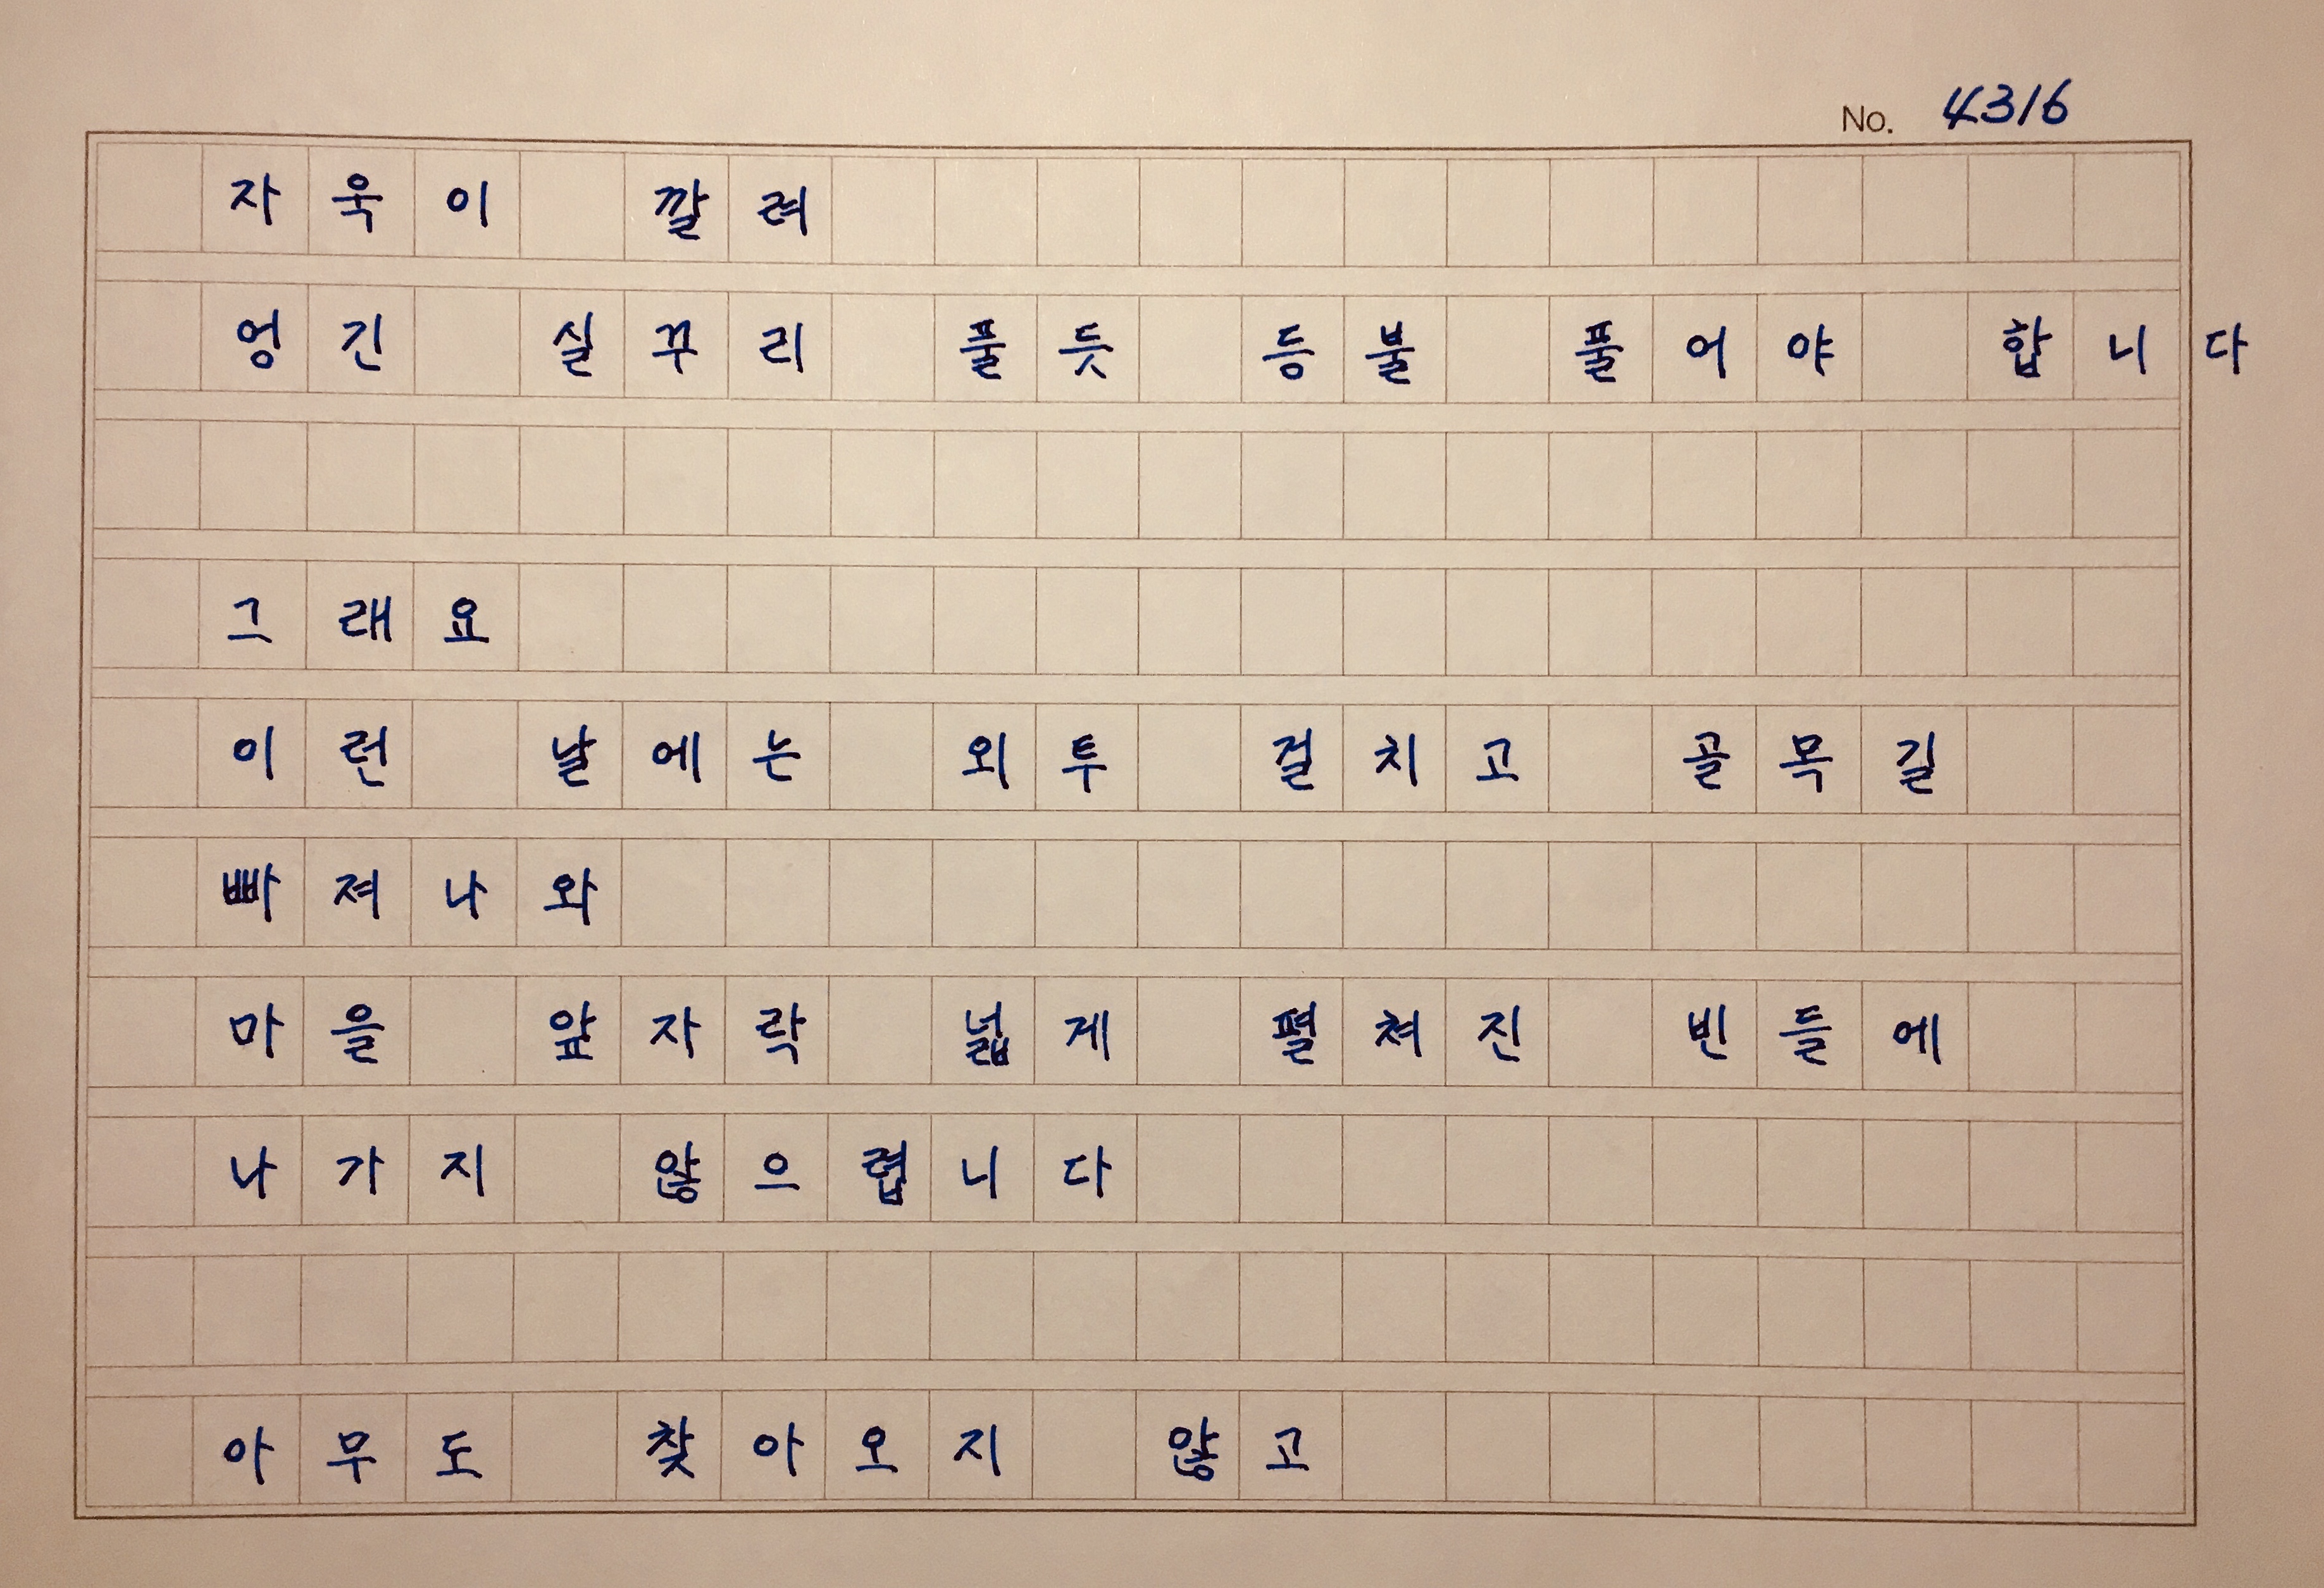 No. 4316
자욱이 깔려
엉긴 실꾸리 풀듯 등불 풀어야 합니다
그래요
이런 날에는 외투 걸치고 골목길
빠져나와
마을 앞자락 넓게 펼쳐진 빈들에
나가지 않으렵니다
아무도 찾아오지 않고